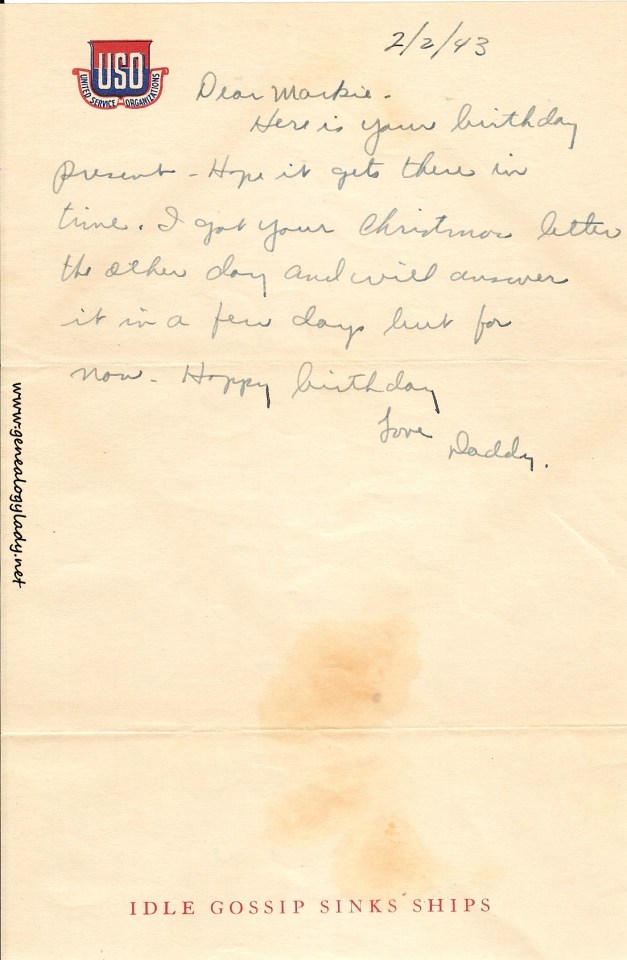 2/2/43
USO
UNITED SERVICE ORGANIZATIONS
Dear Markie.
Here is your birthday
present - Hope it gets there in
time. I got your Christmas letter
the other day and will answer
it in a few days but for
now - Happy birthday
Love
Daddy.
www.genealogylady.net
IDLE GOSSIP SINKS SHIPS